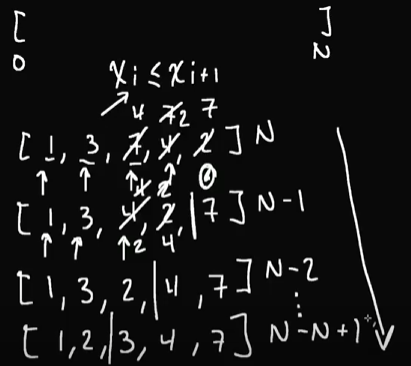 [ ]
0 N
xi ≤ xi+1
4 7 2 7
[ 1, 3, 7, 4, 2 ] N
4 2
[ 1, 3, 4, 2, | 7 ] N-1
2 4
[ 1, 3, 2, | 4, 7 ] N-2
⋮
[ 1, 2, | 3, 4, 7 ] N-N+1